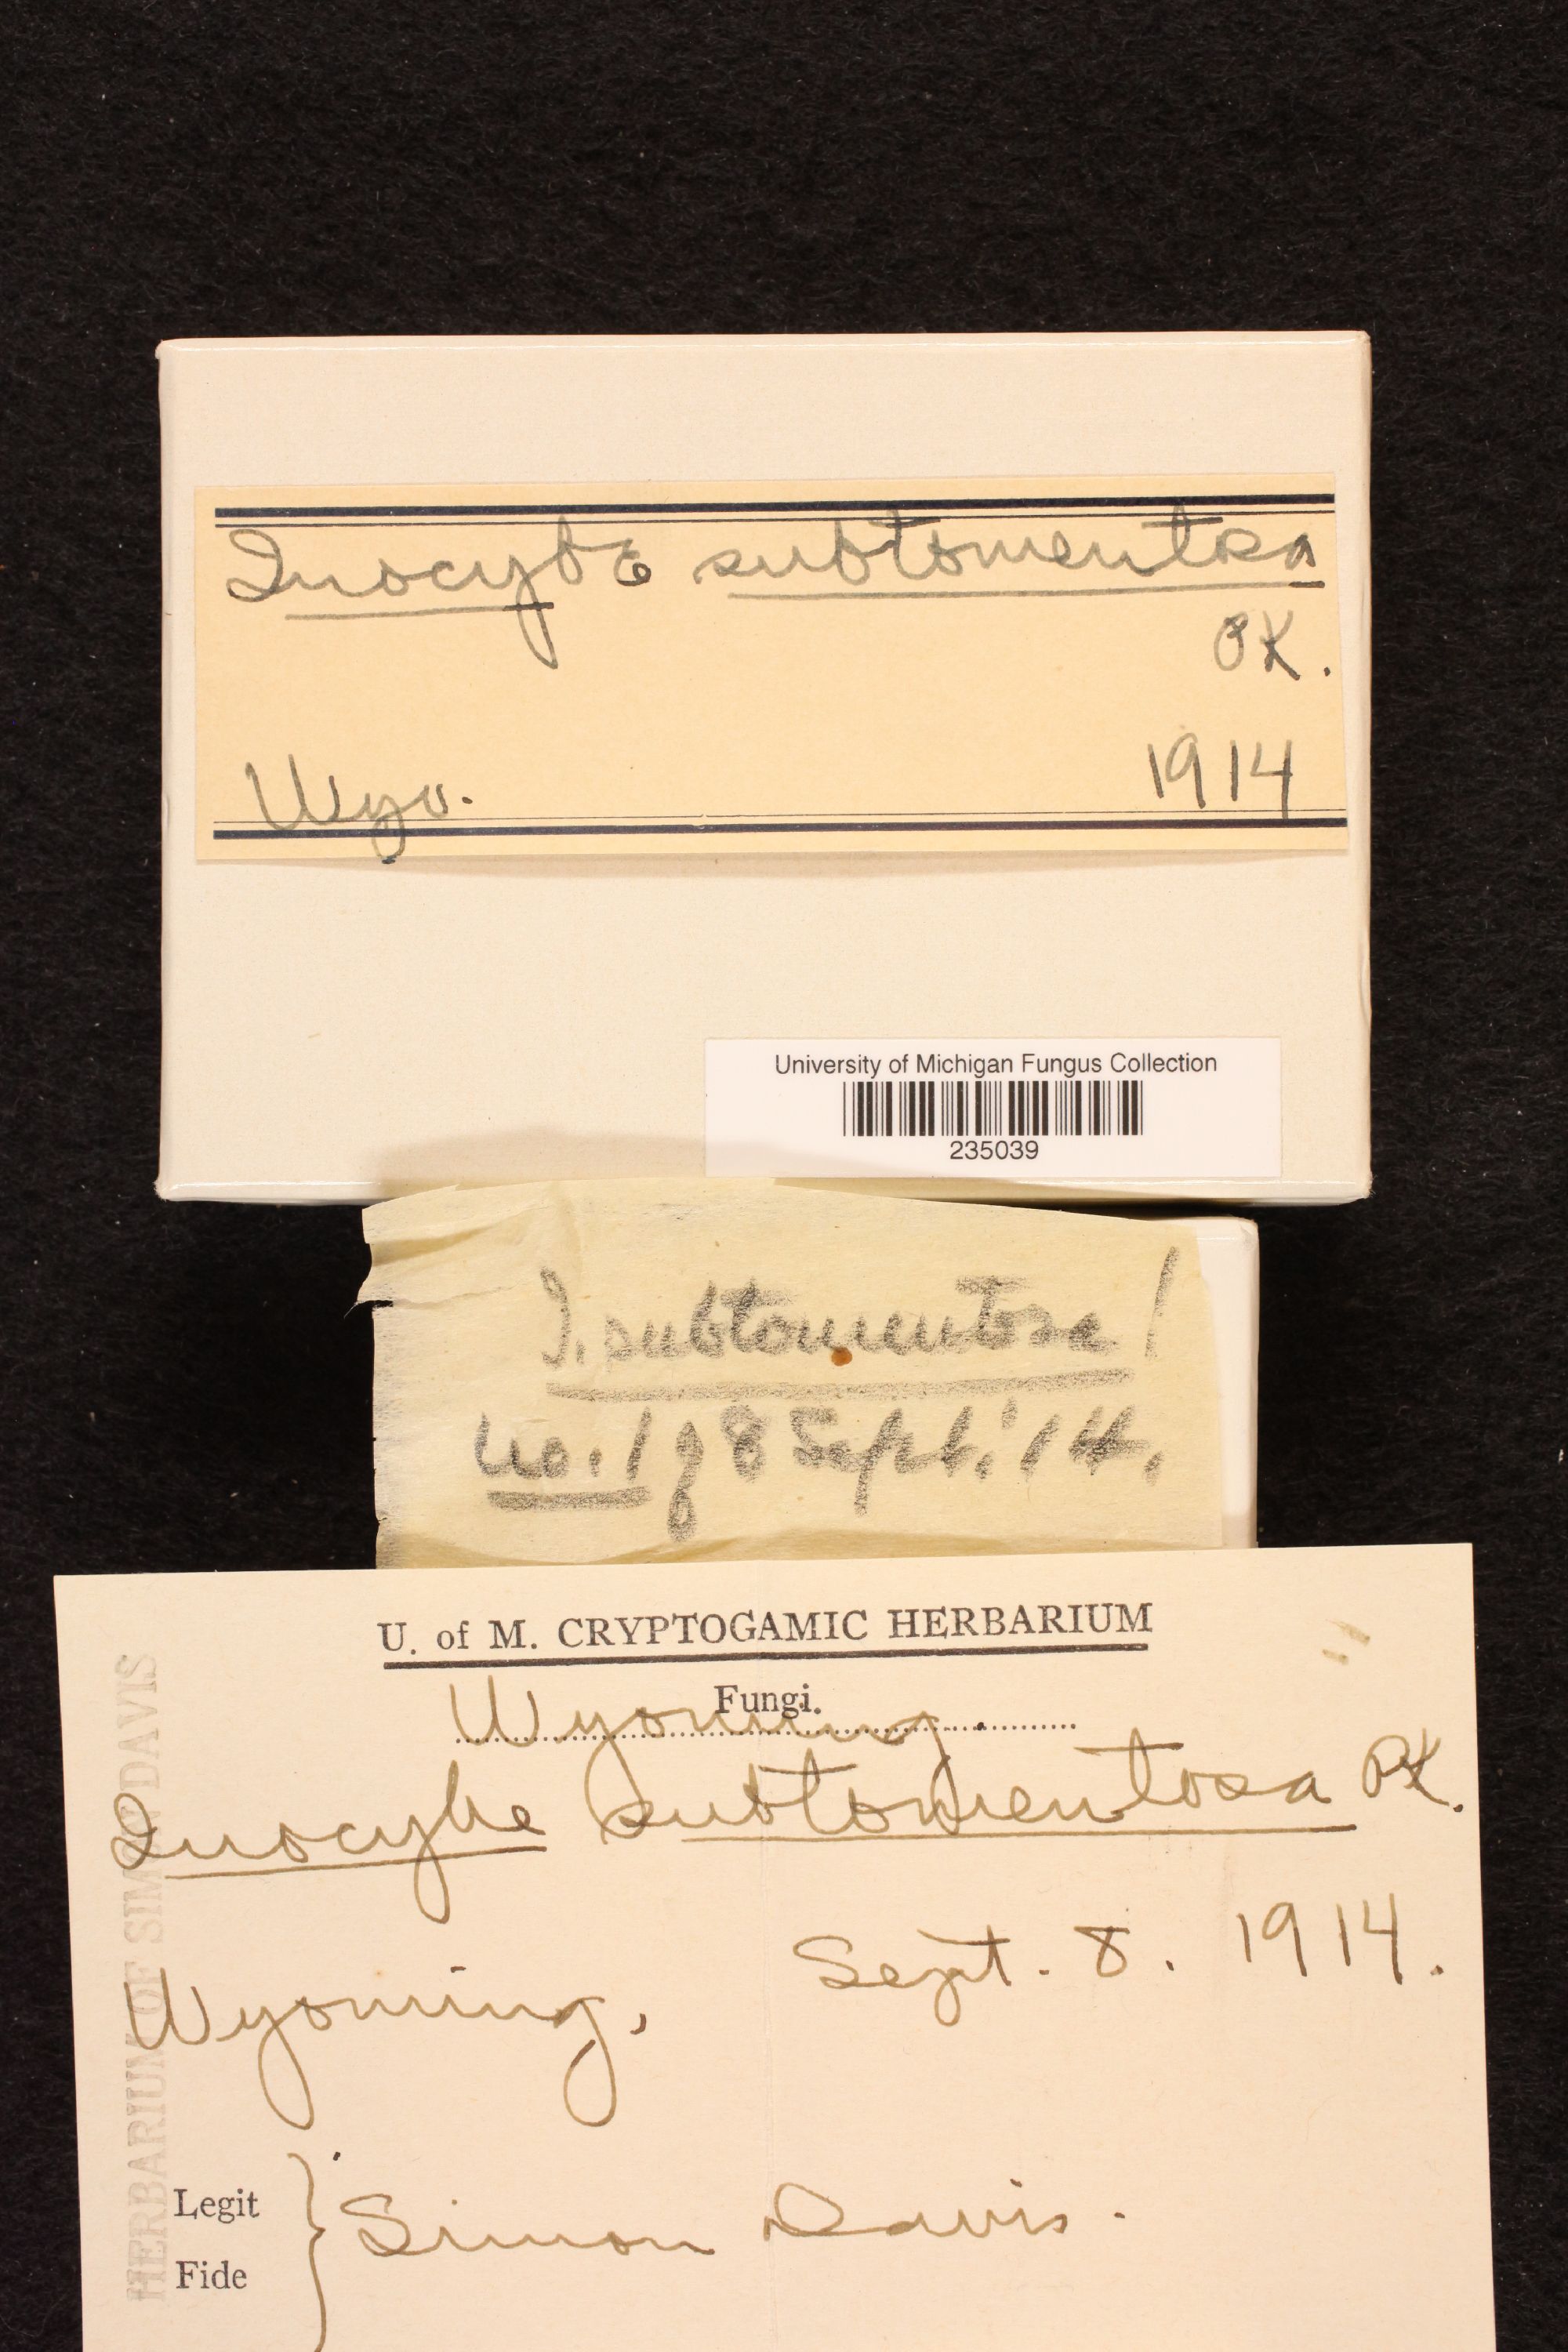 Inocybe subtomentosa
PK.
Wyo. 1914
University of Michigan Fungus Collection
235039
I. subtomentosa!
no. 1 of 8 Sept. '14.
U. of M. CRYPTOGAMIC HERBARIUM
Fungi.
Wyoming.
Inocybe subtomentosa PK.
Wyoming, Sept. 8. 1914.
Legit
Fide
Simon Davis.
HERBARIUM OF SIMON DAVIS